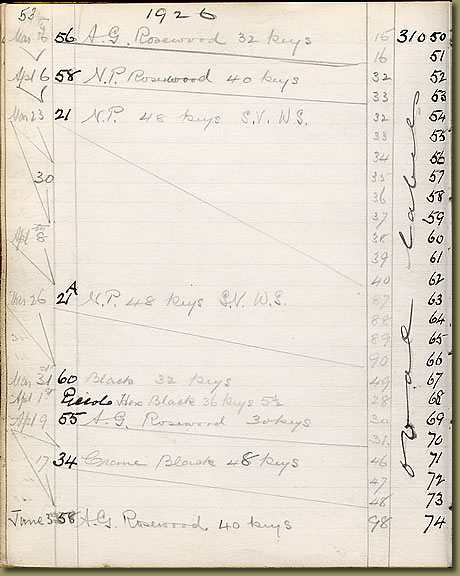 53 1926
56 A.G. Rosewood 32 keys 15 31050
16 51
Apl 6 58 N.P. Rosewood 40 keys 32 52
33 53
Mar 23 21 N.P. 48 keys S.V. W.S. 32 54
33 55
34 56
30 35 57
36 58
37 59
Apl 8 38 60
39 61
40 62
Mar 26 21A N.P. 48 keys S.V. W.S. 87 63
88 64
89 65
90 66
Mar 31 60 Black 32 keys 49 67
Apl 1st Piccolo Hex Black 36 keys 5½ 28 68
Apl 9 55 A.G. Rosewood 30 keys 30 69
31 70
17 34 Crane Black 48 keys 46 71
47 72
48 73
June 3 58 A.G. Rosewood 40 keys 98 74
Oval labels